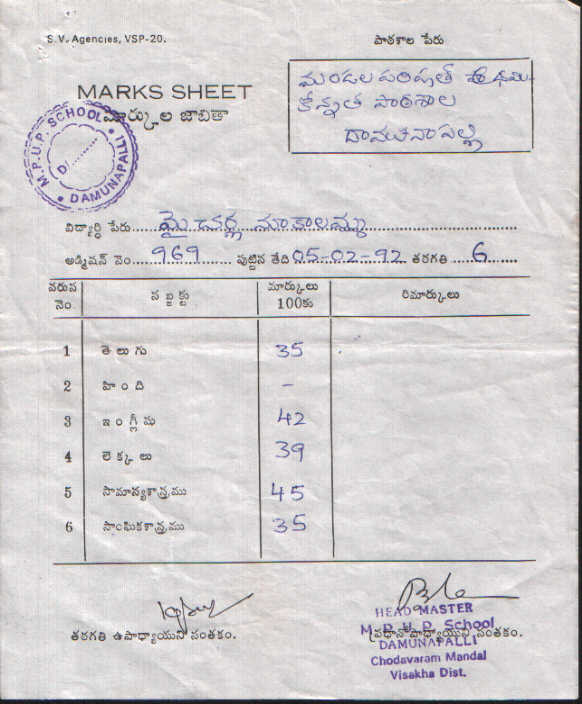 S.V. Agencies, VSP-20.
పాఠశాల పేరు
MARKS SHEET
మార్కుల జాబితా
మండల పరిషత్ ప్రాథమి
కోన్నత పాఠశాల
దామునాపల్లి
M.P.U.P. SCHOOL
D/
DAMUNAPALLI
విద్యార్థి పేరు నూకాలమ్మ
అడ్మిషన్ నెం. 969 పుట్టిన తేది 05-02-92 తరగతి 6
వరుస నెం సబ్జెక్టు మార్కులు 100కు రిమార్కులు
1 తెలుగు 35
2 హింది -
3 ఇంగ్లీషు 42
4 లెక్కలు 39
5 సామాన్యశాస్త్రము 45
6 సాంఘికశాస్త్రము 35
తరగతి ఉపాధ్యాయుని సంతకం.
ప్రధానోపాధ్యాయుని సంతకం.
HEAD MASTER
M.P.U.P. School
DAMUNAPALLI
Chodavaram Mandal
Visakha Dist.